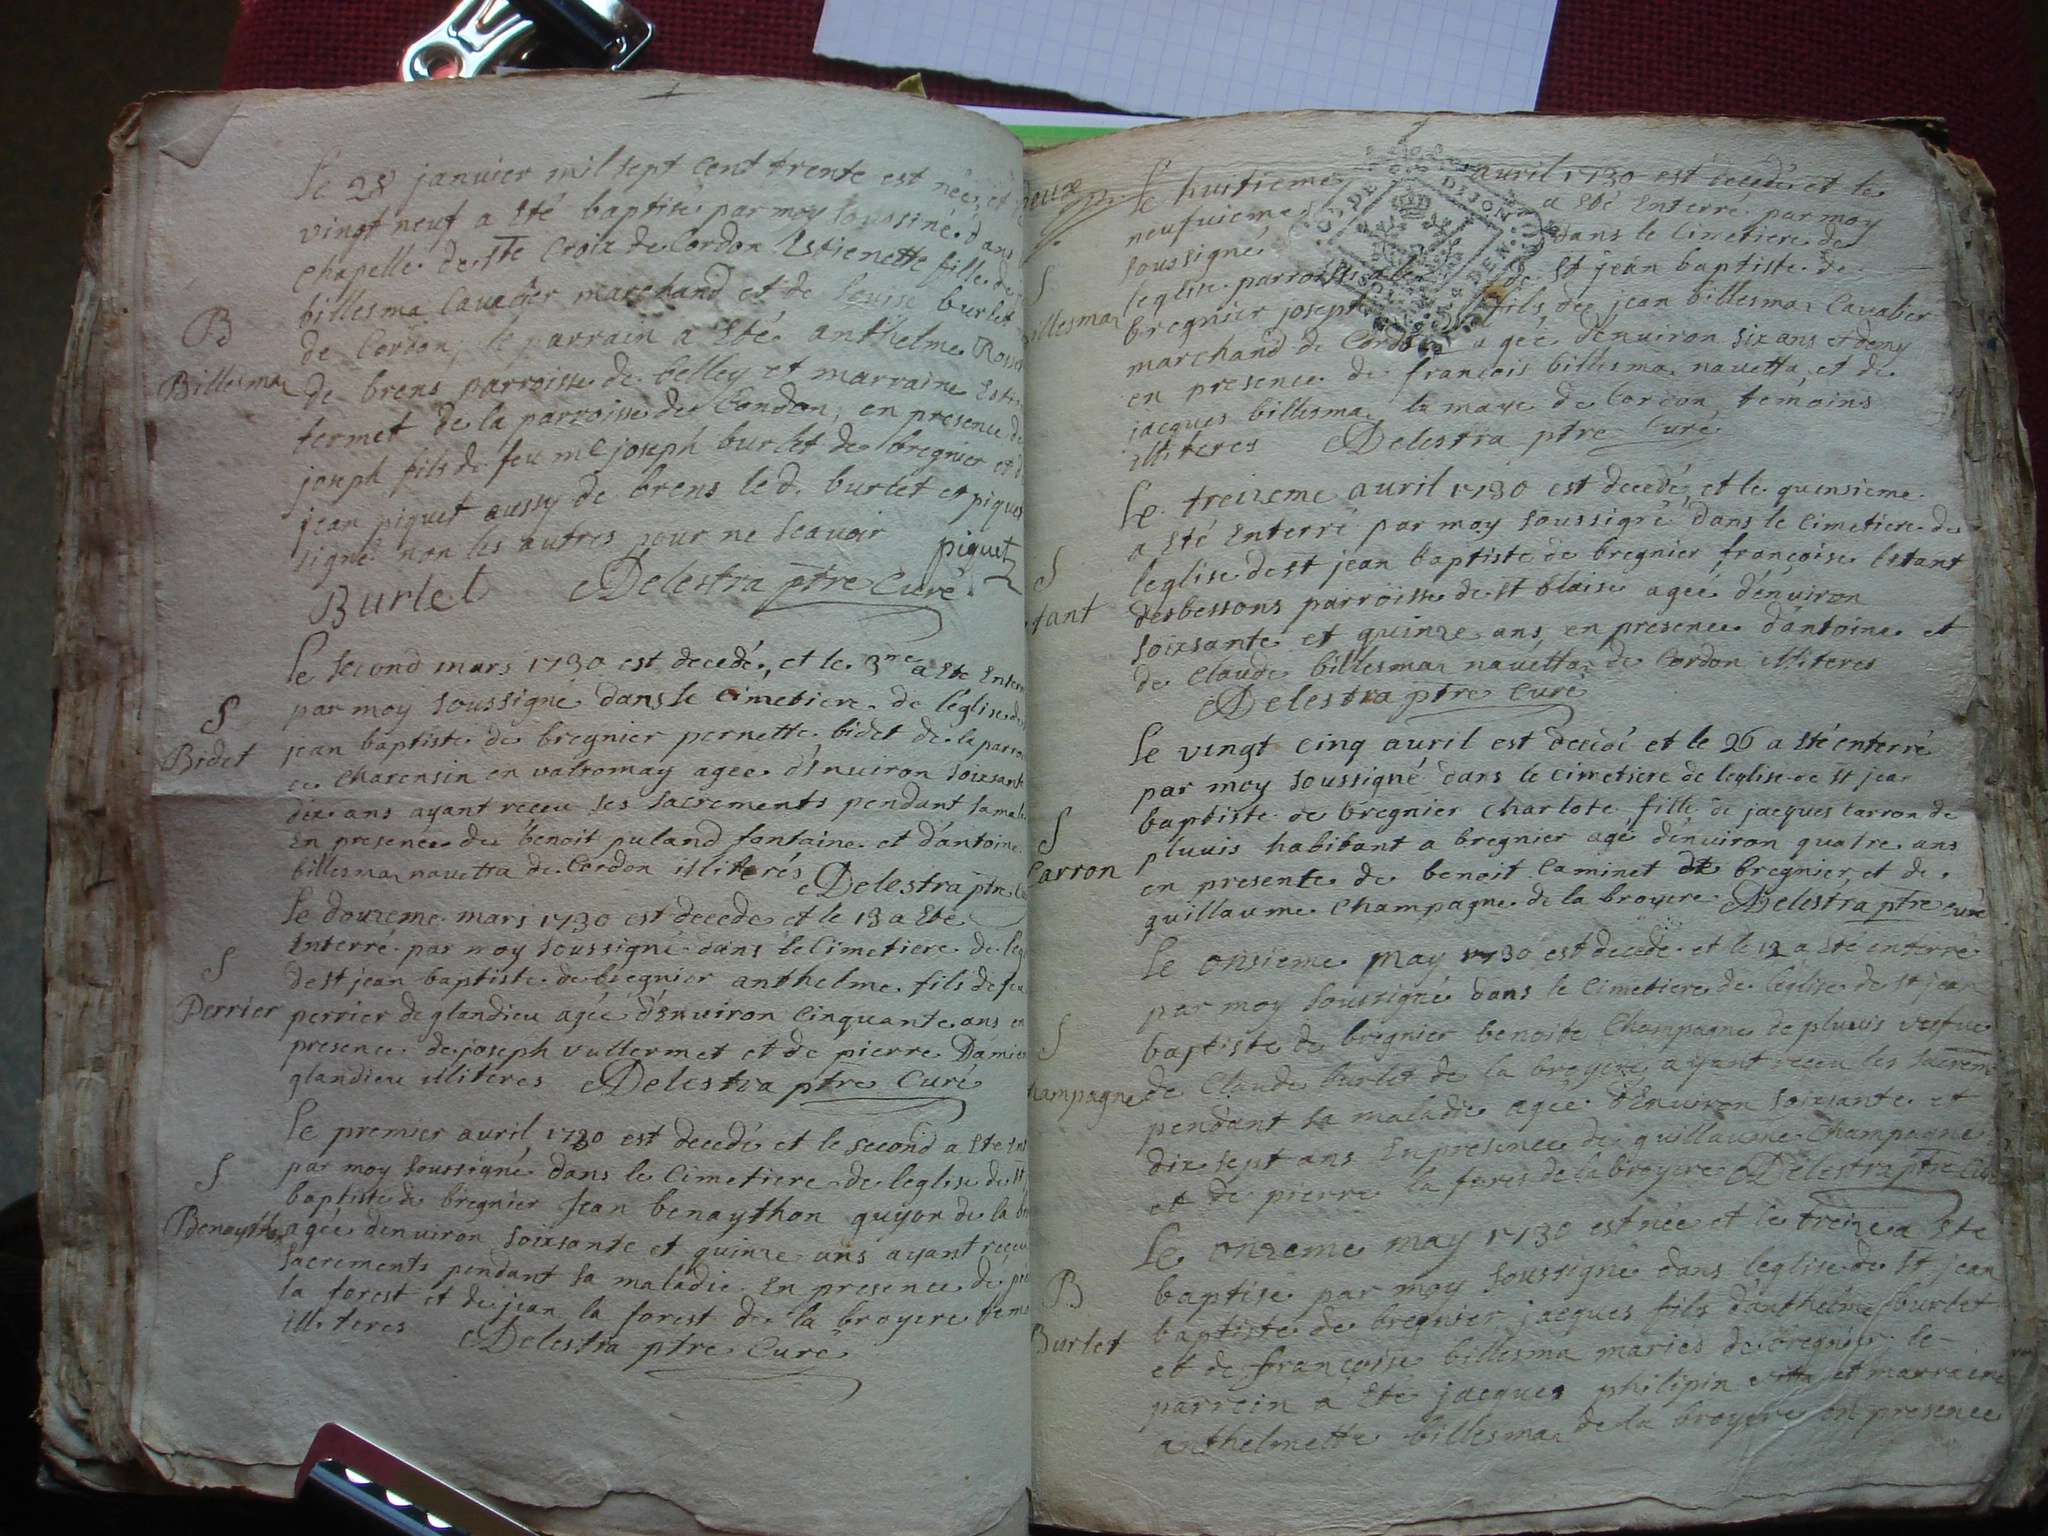 Le 28 janvier mil sept cent trente est née, et
vingt neuf a Eté baptisé par moy soussiné dans
chapelle de ste Croix de Cordon Estienette fille de
billesmaz Cavalier marchand et de Louise burlet
de Cordon, le parrain a Eté anthelme
de brens parroisse de belley et marraine
termet de la parroisse de Condon, en presence de
joseph fils de feu me joseph burlet de bregnier et d
jean piquet aussy de brens led. burlet et piquet
signé non les autres pour ne scavoir piquet
Burlet Delestra ptre Curé
B
Billesmaz
Le second mars 1730 est decedé, et le 3me a Eté Enter
par moy soussigné dans le Cimetiere de l'eglise de
jean baptiste de bregnier pernette bidet de la parro
de Charensin en valromay agee d'Environ soixsante
dix ans ayant receu ses sacrements pendant sa mala
En presence de benoit puland fontaine et d'antoine
billesmaz navetta de Cordon illiterés Delestra ptre Cu
S
Bidet
Le douzeme mars 1730 est decede et le 13 a Eté
Enterré par moy soussigné dans le Cimetiere de leg
de st jean baptiste de bregnier anthelme fils de feu
perrier de glandieu agée d'Environ Cinquante ans en
presence de joseph vullermet et de pierre Damie
glandieu illiteres Delestra ptre Curé
S
Perrier
Le premier avril 1730 est decedé et le second a Eté Ent
par moy soussigné dans le Cimetiere de leglise de st
baptiste de bregnier Jean benaython guyon de la br
agée denviron soixsante et quinze ans ayant reçeu
sacrements pendant sa maladie En presence de pie
la forest et de jean la forest de la broyere temo
illiteres Delestra ptre Curé
S
Benaython
Le huitieme avril 1730 est decedé et le
neufvieme a Eté Enterré par moy
soussigné dans le Cimetiere de
leglise parroissiale de st jean baptiste de
bregnier joseph fils de jean billesmaz Cavalier
marchand de Cordon agée d'Environ six ans et demy
en presence de francois billesmaz navetta et de
jacques billesmaz la maye de Cordon temoins
illiteres Delestra ptre Curé
S
illesmaz
Le treizeme avril 1730 est decedé et le quinsieme
a Eté Enterré par moy soussigné dans le Cimetiere de
leglise de st jean baptiste de bregnier françoise lestant
desbessons parroisse de st blaise agée d'Environ
soixsante et quinze ans, en presence d'antoine et
de Claude billesmaz navetta de Cordon illiteres
Delestra ptre Curé
S
tant
Le vingt cinq avril est decedé et le 26 a Eté enterré
par moy soussigné dans le cimetiere de leglise de st jean
baptiste de bregnier Charlote fille de jacques Carron de
pluvis habitant a bregnier agé d'environ quatre ans
en presente de benoit Caminet de bregnier, et de
guillaume Champagne de la broyere Delestra ptre curé
S
Carron
Le onsieme may 1730 est decedé et le 12 a Eté enterré
par moy soussigné dans le Cimetiere de leglise de st jean
baptiste de bregnier benoite Champagne de pluvis vefue
de Claude burlet de la broyere ayant receu les sacrem
pendant sa maladie agée d'Environ soixsante et
dix sept ans En presence de guillaume Champagne
et de pierre la forest de la broyere Delestra ptre Cu
S
hampagne
Le onzeme may 1730 est née et le treize a Eté
baptisé par moy soussigné dans leglise de st jean
baptiste de bregnier jacques fils d'anthelme burlet
et de françoise billesma mariés de bregnier le
parrein a Eté jacques philipin et marraine
anthelmette billesmaz de la broyere en presence
B
Burlet